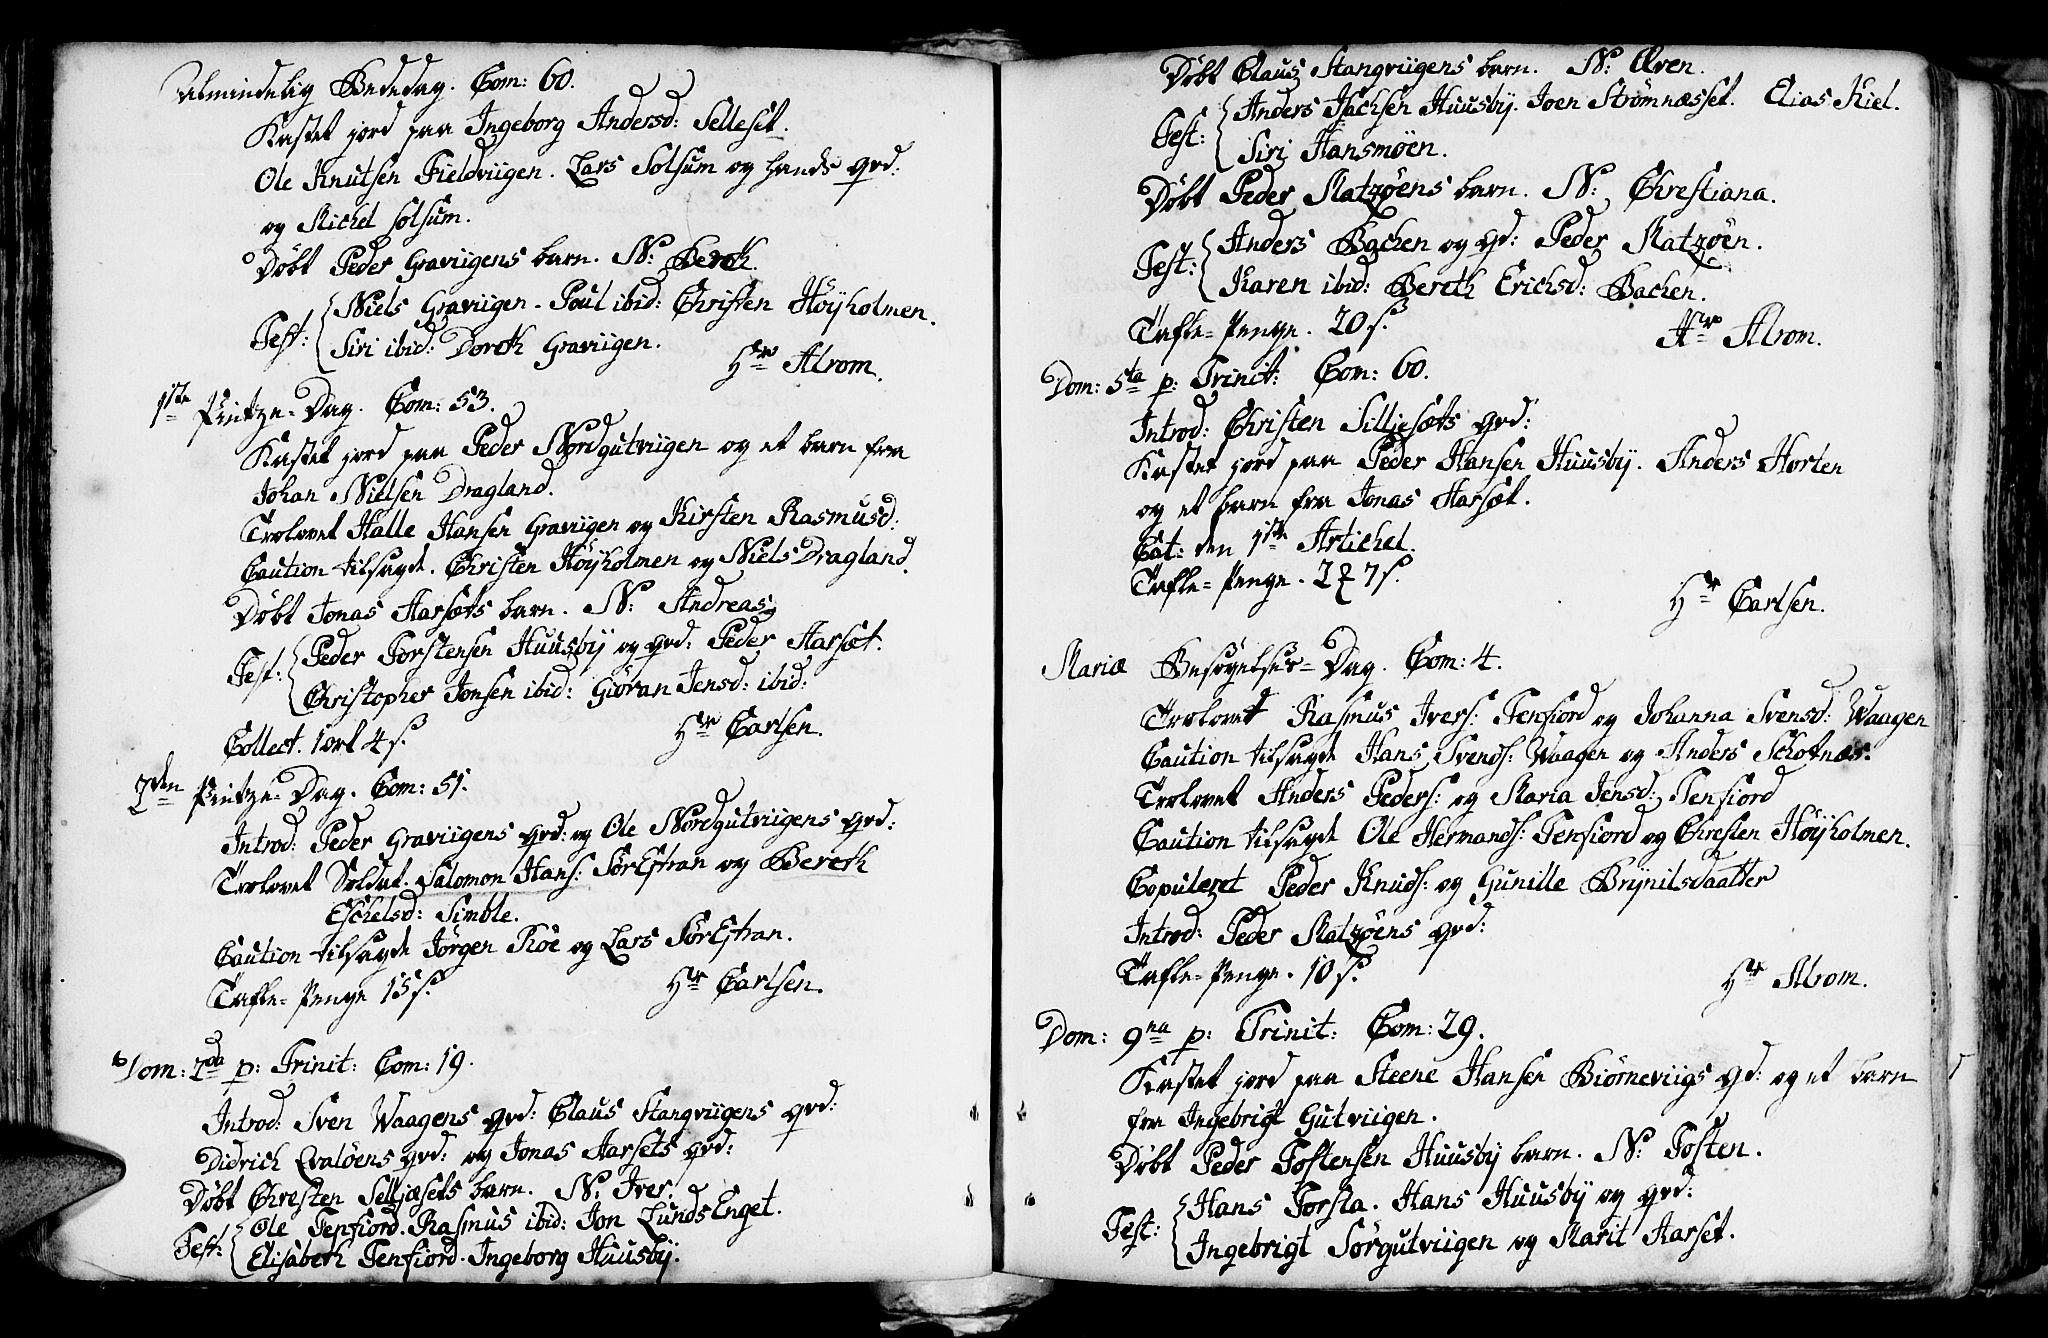 Almindelig Bededag. Com: 60.
Kastet jord paa Ingeborg Andersd: Selleset.
Ole Knutsen Fieldviigen. Lars Solsum og hands qvd:
og Michel Solsum.
Døbt Peder Graviigens barn. N: Bereth.
Test: Niels Graviigen. Poul ibid: Christen Høÿholmen.
Siri ibid: Doreth Graviigen.
Hr Alrom.
1ste Pintze-Dag. Com: 53.
Kastet jord paa Peder Nordgutviigen og et barn fra
Johan Nielsen Dragland.
Trolovet Halle Hansen Graviigen og Kirsten Rasmusd:
Caution tilsagde. Christen Høÿholmen og Niels Dragland.
Døbt Jonas Aarsæts barn. N: Andreas
Test: Peder Torstensen Huusbÿ og qvd: Peder Aarsæt.
Christopher Jonsen ibid: Giøran Jensd: ibid:
Collect. 1 ort 4 s.
Hr Carlsen.
2den Pintze-Dag. Com: 51.
Introd: Peder Graviigens qvd: og Ole Nordgutviigens qvd:
Trolovet Soldat. Salomon Hans: SørEstran og Bereth
Eschelsd: Simble.
Caution tilsagde Jørgen Roe og Lars SørEstran.
Tafle-Penge 15 s.
Hr Carlsen.
Dom: 2da p: Trinit: Com: 19.
Introd: Sven Waagens qvd: Claus Stangviigens qvd:
Didrich Qvaløens qvd: og Jonas Aarsets qvd:
Døbt Chresten Selljæsets barn. N: Iver.
Test: Ole Tenfiord. Rasmus ibid: Jon LundsEnget.
Elisabeth Tenfiord. Ingeborg Huusbÿ.
Døbt Claus Stangviigens barn. N: Ören.
Test: Anders Isachsen Huusbÿ. Joen Strømnæsset. Elias Kiel.
Siri Hansmøen.
Døbt Peder Matzøens barn. N: Chrestiana.
Test: Anders Bachen og qd: Peder Matzøen.
Karen ibid: Bereth Erichsd: Bachen.
Tafle-Penge. 20 s.
Hr Alrom.
Dom: 5ta p: Trinit: Com: 60.
Introd: Christen Silljesæts qvd:
Kastet jord paa Peder Hansen Huusbÿ. Anders Horten
og et barn fra Jonas Aarsæt.
Cat: den 1ste Artichel.
Tafle-Penge. 2 7 s.
Hr Carlsen.
Mariæ Besøgelses-Dag. Com: 4.
Trolovet Rasmus Ivers: Tenfiord og Johanna Svensd: Waagen
Caution tilsagde Hans Svends: Waagen og Anders Schotnæs.
Trolovet Anders Peders: og Maria Jensd: Tenfiord
Caution tilsagde Ole Hermands: Tenfiord og Chresten Høÿholmen.
Copuleret Peder Knuds: og Gunille Brÿnilsdaatter
Introd: Peder Matzøens qvd:
Tafle-Penge. 10 s.
Hr Alrom.
Dom: 9na p: Trinit: Com: 29.
Kastet jord paa Steene Hansen Biørneviigs qd: og et barn
fra Ingebrigt Gutviigen.
Døbt Peder Tostensen Huusbÿ barn. N: Tosten.
Test: Hans Forsla. Hans Huusbÿ og qvd:
Ingebrigt Sørgutviigen og Marit Aarset.